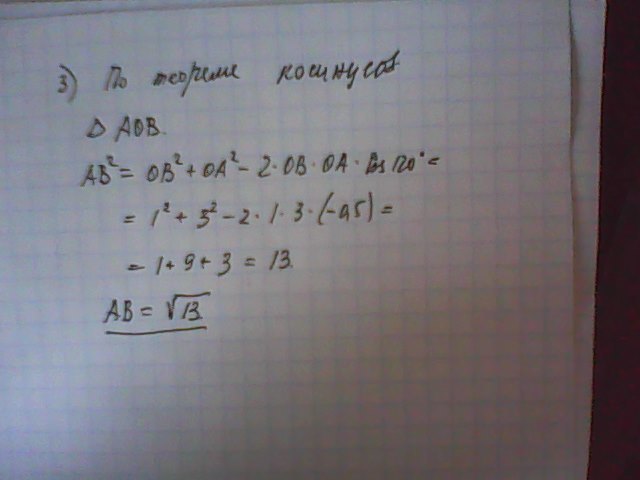 3) По теореме косинусов
Δ AOB.
AB² = OB² + OA² - 2·OB·OA·cos 120° =
= 1² + 3² - 2·1·3·(-0,5) =
= 1 + 9 + 3 = 13.
AB = √13